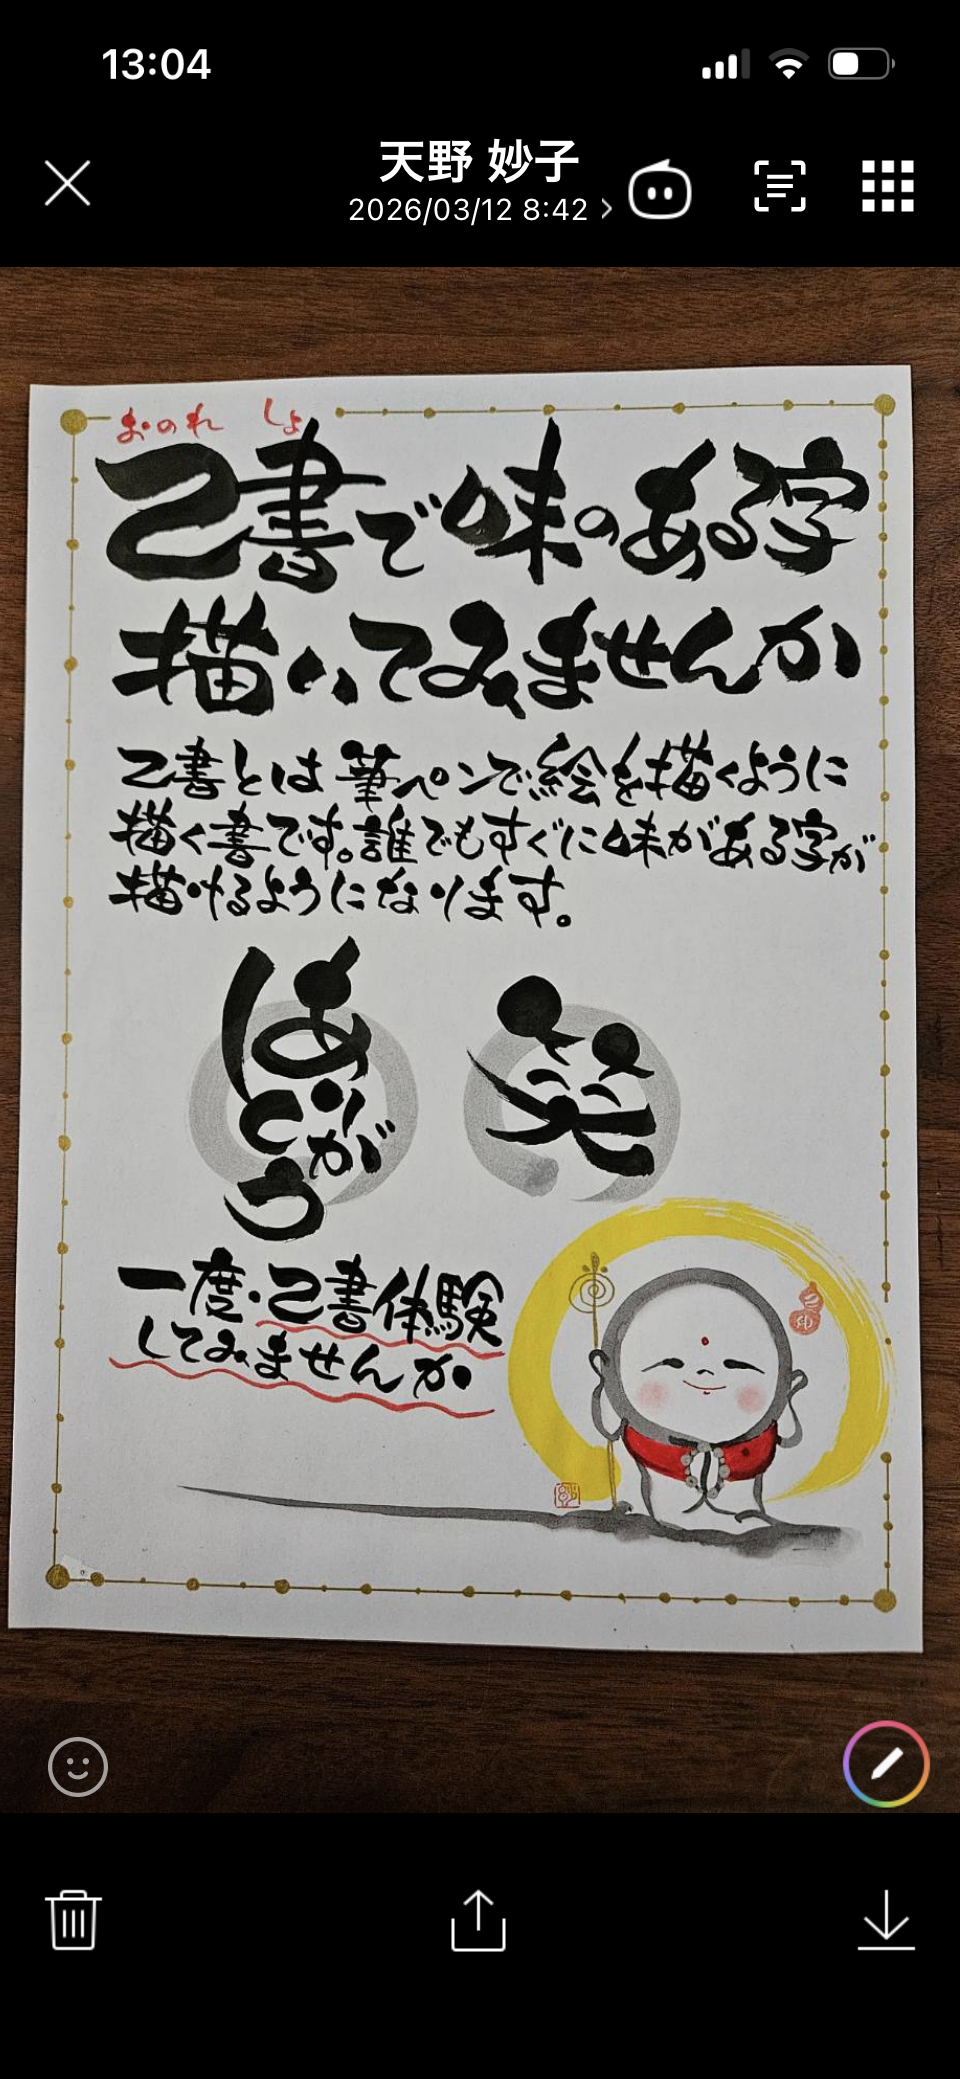 13:04
天野 妙子
2026/03/12 8:42
おのれ しょ
己書で味のある字
描いてみませんか
己書とは筆ペンで絵を描くように
描く書です。誰でもすぐに味がある字が
描けるようになります。
ありがとう
笑
一度・己書体験
してみませんか